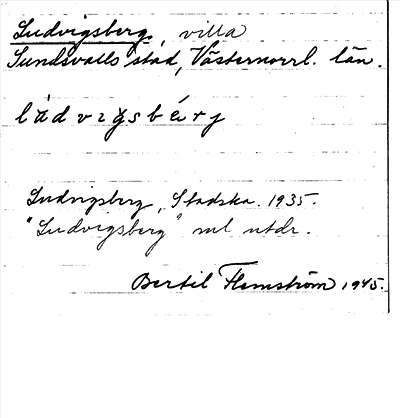 Ludvigsberg, villa
Sundsvalls stad, Västernorrl. län.
Ludvigsberg, Stadska. 1935.
"Ludvigsberg" enl utdr.
Bertil Flemström 1945.